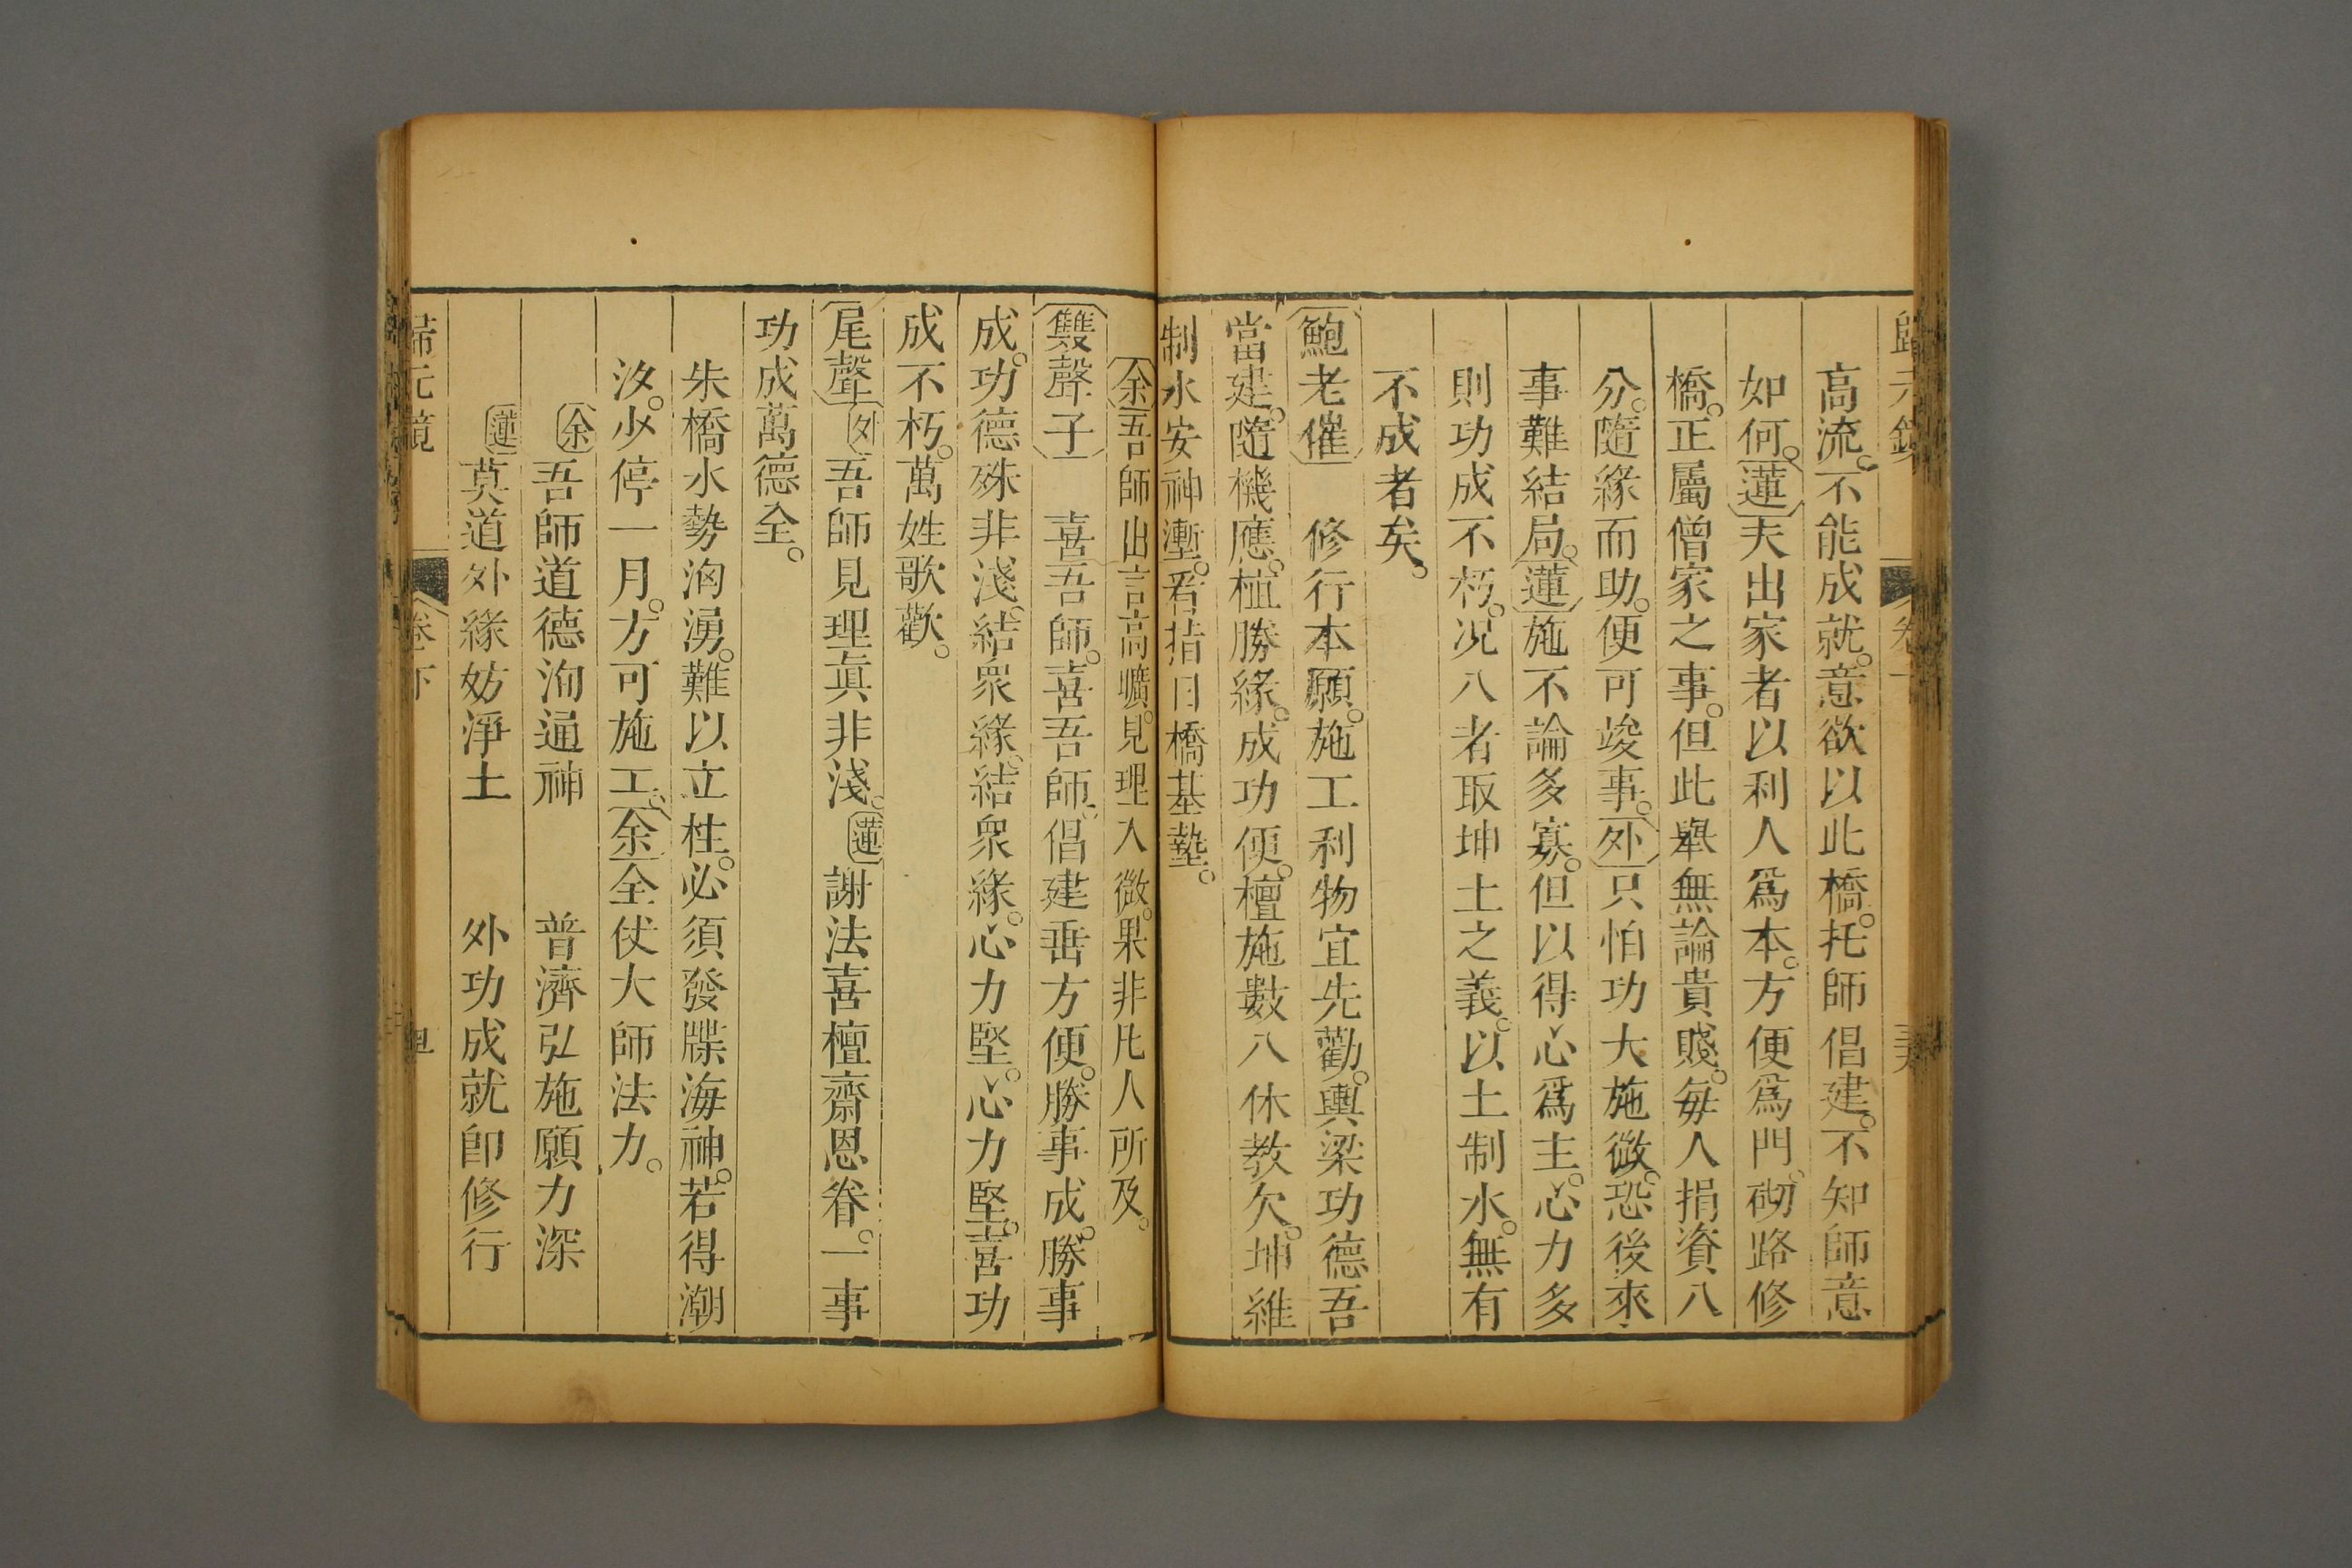 高流。不能成就。意欲以此橋。托師倡建。不知師意
如何。蓮夫出家者以利人爲本。方便爲門。砌路修
橋。正屬僧家之事。但此舉無論貴賤。每人捐資八
分。隨緣而助。便可竣事。外只怕功大施微。恐後來
事難結局。蓮施不論多寡。但以得心爲主。心力多
則功成不朽。况八者取坤土之義。以土制水。無有
不成者矣。
鮑老催 修行本願。施工利物宜先勸。輿梁功德吾
當建。隨機應。植勝緣。成功便。檀施數八休教欠。坤維
制水安神塹。看指日橋基墊。
余吾師出言高曠。見理入微。果非凡人所及。
雙聲子 喜吾師。喜吾師。倡建垂方便。勝事成。勝事
成。功德殊非淺。結衆緣。結衆緣。心力堅。心力堅。喜功
成不朽。萬姓歌歡。
尾聲 外吾師見理眞非淺。蓮謝法喜檀齋恩眷。一事
功成萬德全。
朱橋水勢洶湧。難以立柱。必須發牒海神。若得潮
汐。少停一月。方可施工。余全仗大師法力。
余吾師道德洵通神 普濟弘施願力深
蓮莫道外緣妨淨土 外功成就卽修行
歸元鏡 卷下